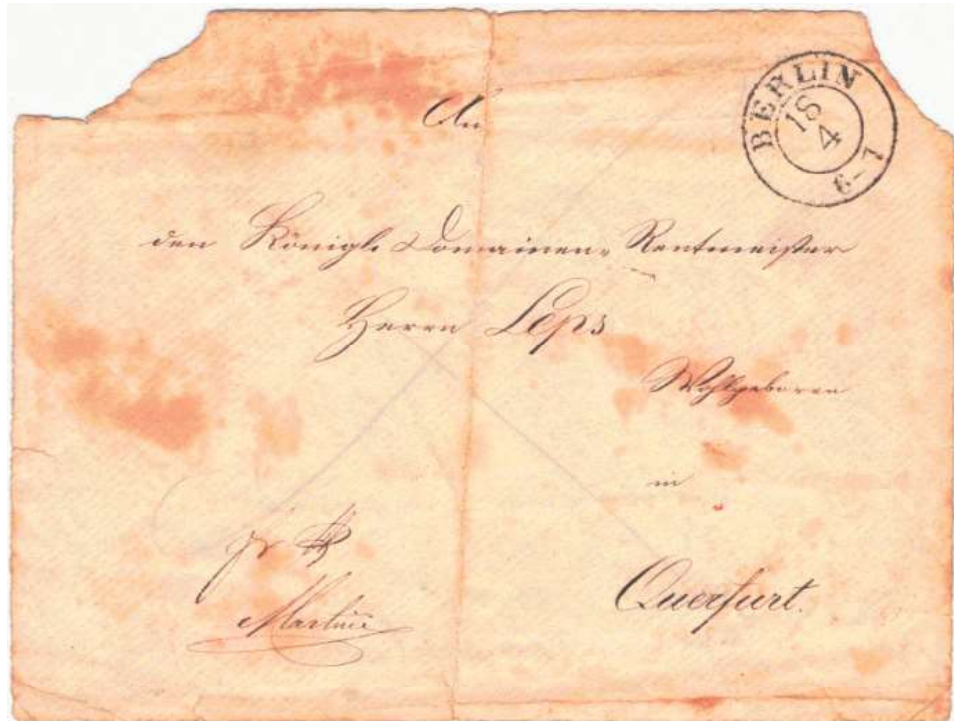 An
BERLIN
18
4
6-7
den Königl. Domainen-Rentmeister
Herrn Leps
Wohlgeboren
in
Querfurt.
fr
Martini